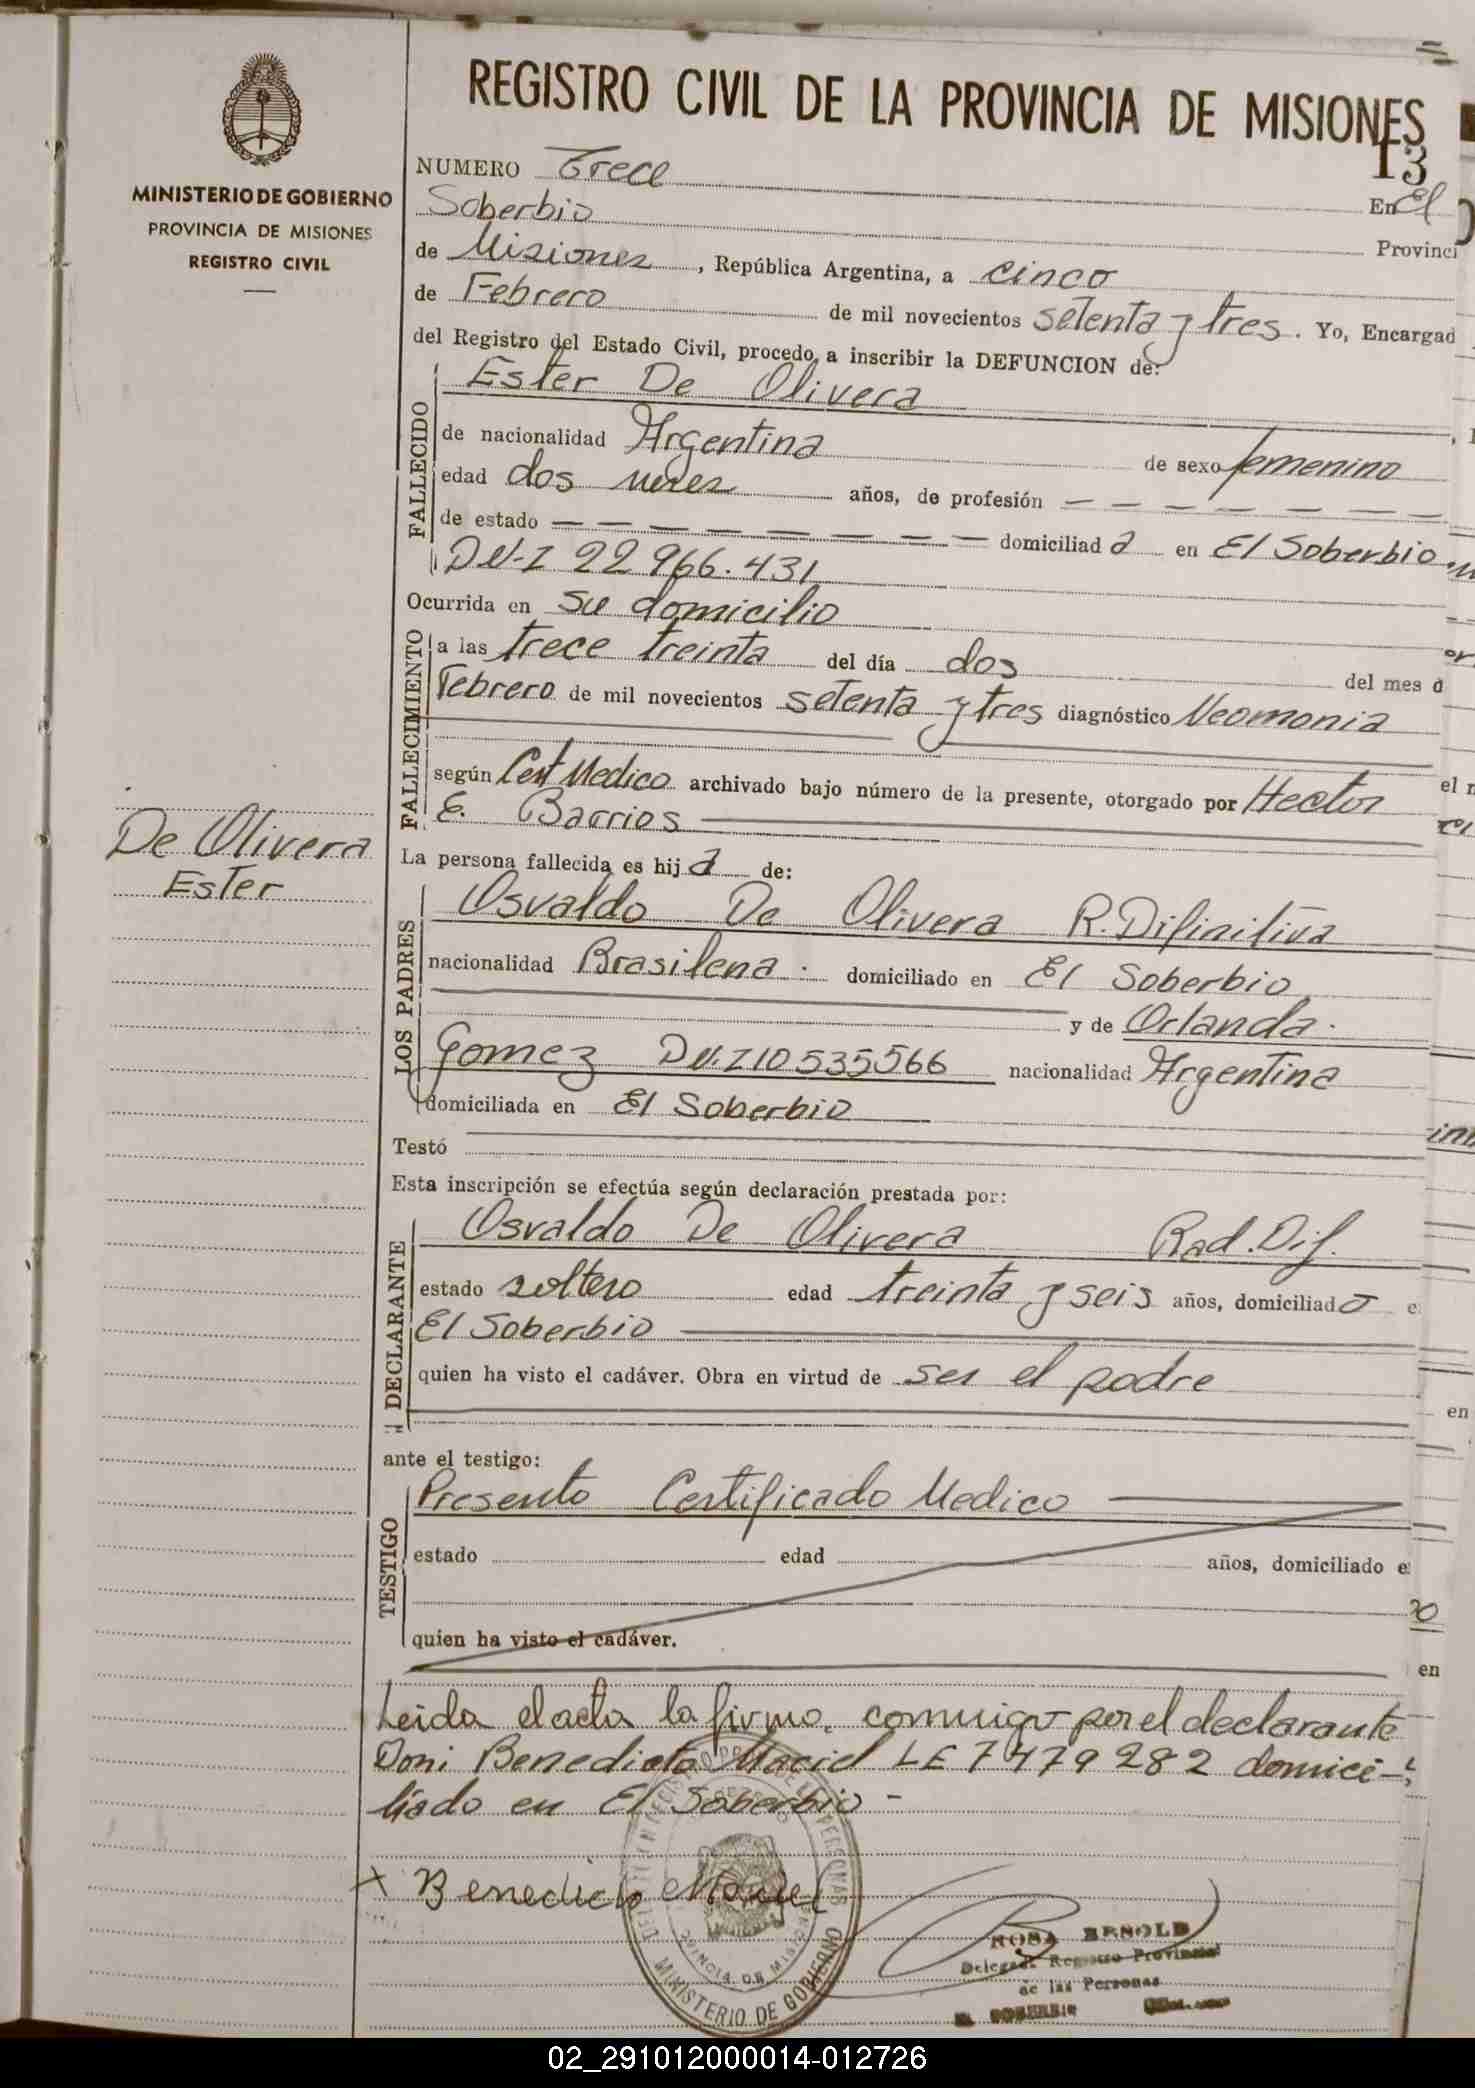 REGISTRO CIVIL DE LA PROVINCIA DE MISIONES
13
MINISTERIO DE GOBIERNO
PROVINCIA DE MISIONES
REGISTRO CIVIL
NUMERO Trece En El
Soberbio Provinci
de Misiones, República Argentina, a cinco
de Febrero de mil novecientos setenta y tres. Yo, Encargad
del Registro del Estado Civil, procedo a inscribir la DEFUNCION de:
FALLECIDO
Ester De Olivera
de nacionalidad Argentina de sexo femenino
edad dos meses años, de profesión — — — — — —
de estado — — — — — — — — — domiciliad a en El Soberbio
D.N.I 22 966.431
Ocurrida en su domicilio
FALLECIMIENTO
a las trece treinta del día dos del mes d
Febrero de mil novecientos setenta y tres diagnóstico Neomonia
según Cert Medico archivado bajo número de la presente, otorgado por Hector
E. Barrios
De Olivera
Ester
La persona fallecida es hij a de:
LOS PADRES
Osvaldo De Olivera R. Difinitiva
nacionalidad Brasilena. domiciliado en El Soberbio
y de Orlanda.
Gomez D.N.I 10535566 nacionalidad Argentina
domiciliada en El Soberbio
Testó
Esta inscripción se efectúa según declaración prestada por:
DECLARANTE
Osvaldo De Olivera Rad. Dif.
estado soltero edad treinta y seis años, domiciliado e
El Soberbio
quien ha visto el cadáver. Obra en virtud de ser el padre
ante el testigo:
TESTIGO
Presento Certificado Medico
estado edad años, domiciliado e
quien ha visto el cadáver.
Leida el acta la firma, conmigo por el declarante
Doni Benedicto Maciel LE 7479282 domici-
liado en El Soberbio -
x Benedicto Maciel
MINISTERIO DE GOBIERNO
ROSA BENOLD
Delegada Registro Provincial
de las Personas
EL SOBERBIO
02_291012000014-012726